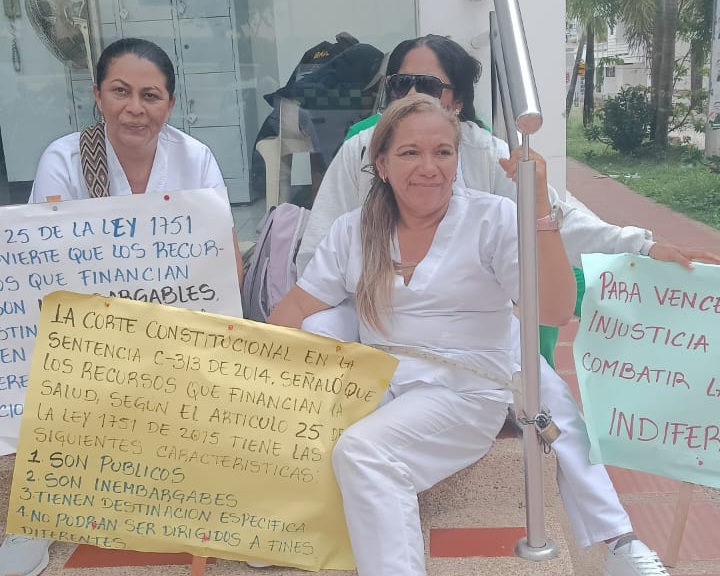 25 DE LA LEY 1751
VIERTE QUE LOS RECUR-
OS QUE FINANCIAN
SON INEMBARGABLES.
LA CORTE CONSTITUCIONAL EN LA
SENTENCIA C-313 DE 2014, SEÑALÓ QUE
LOS RECURSOS QUE FINANCIAN LA
SALUD, SEGUN EL ARTICULO 25 DE
LA LEY 1751 DE 2015 TIENE LAS
SIGUIENTES CARACTERISTICAS:
1. SON PUBLICOS
2. SON INEMBARGABES
3 TIENEN DESTINACION ESPECIFICA
4. NO PODRAN SER DIRIGIDOS A FINES
DIFERENTES.
PARA VENCE
INJUSTICIA
COMBATIR L
INDIFER